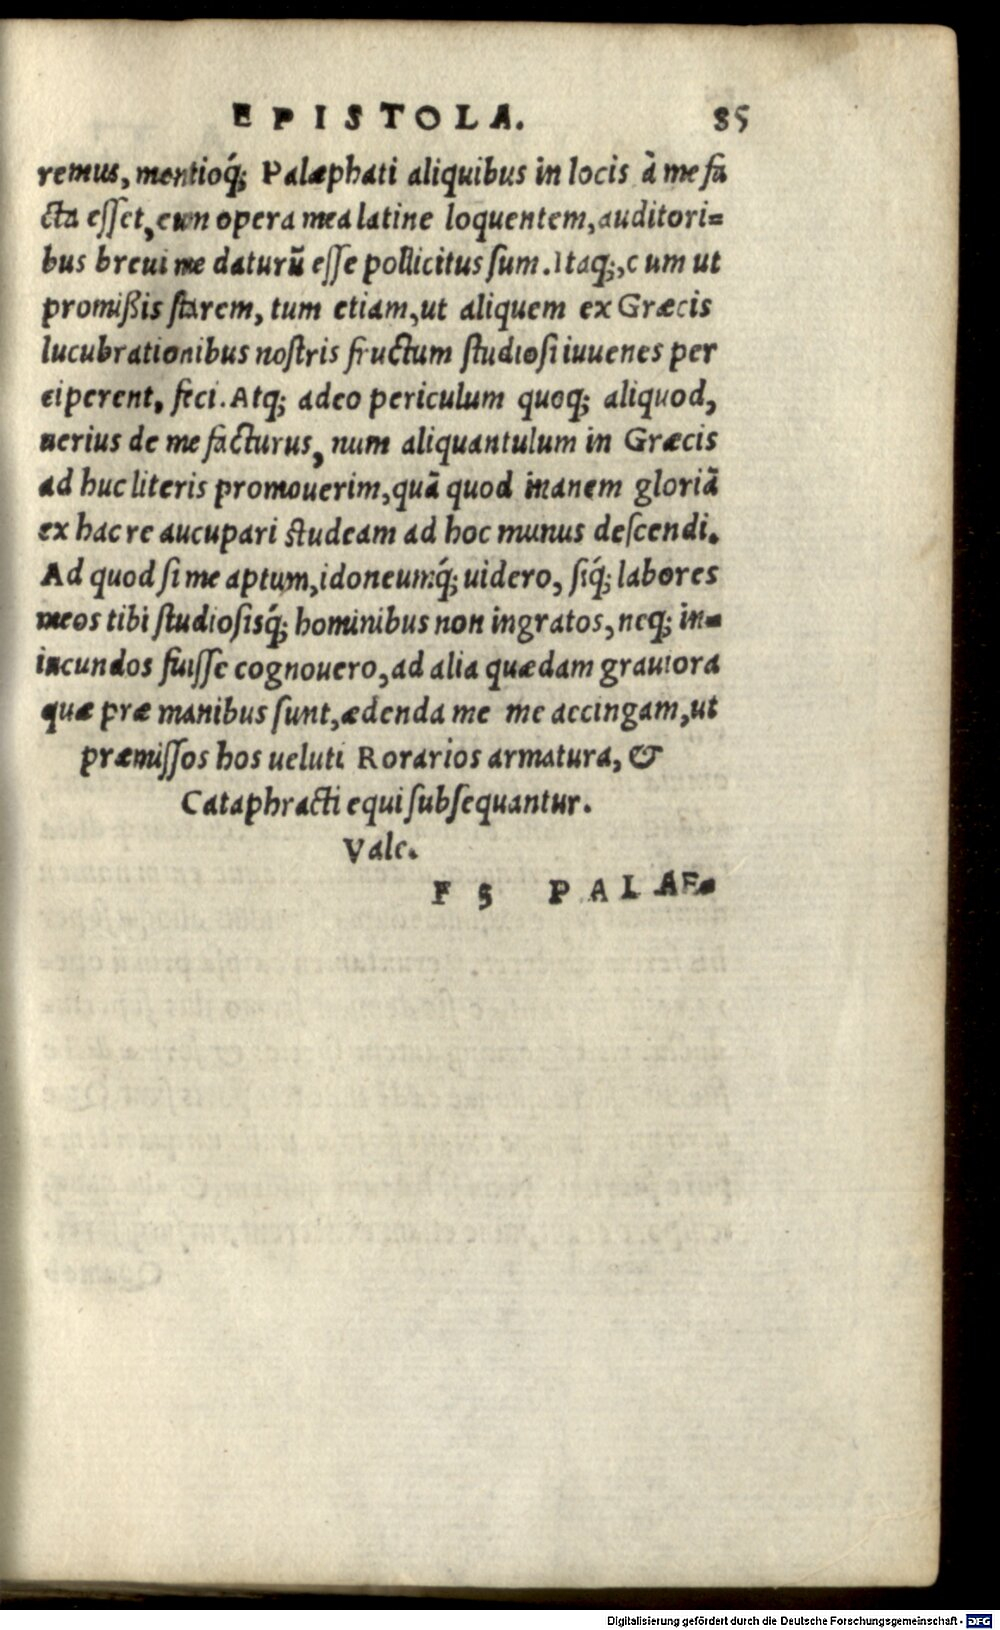 EPISTOLA. 85
remus, mentioq́; Palæphati aliquibus in locis à me fa
cta esset, eum opera mea latine loquentem, auditori=
bus breui me daturũ esse pollicitus sum. Itaq;, cum ut
promißis starem, tum etiam, ut aliquem ex Græcis
lucubrationibus nostris fructum studiosi iuuenes per
ciperent, feci. Atq; adeo periculum quoq; aliquod,
uerius de me facturus, num aliquantulum in Græcis
ad huc literis promouerim, quã quod inanem gloriã
ex hac re aucupari studeam ad hoc munus descendi.
Ad quod si me aptum, idoneumq́; uidero, siq́; labores
meos tibi studiosisq́; hominibus non ingratos, neq; in=
iucundos fuisse cognouero, ad alia quædam grauiora
quæ præ manibus sunt, ædenda me me accingam, ut
præmissos hos ueluti Rorarios armatura, &
Cataphracti equi subsequantur.
Vale.
F 5 PALAE=
Digitalisierung gefördert durch die Deutsche Forschungsgemeinschaft - DFG